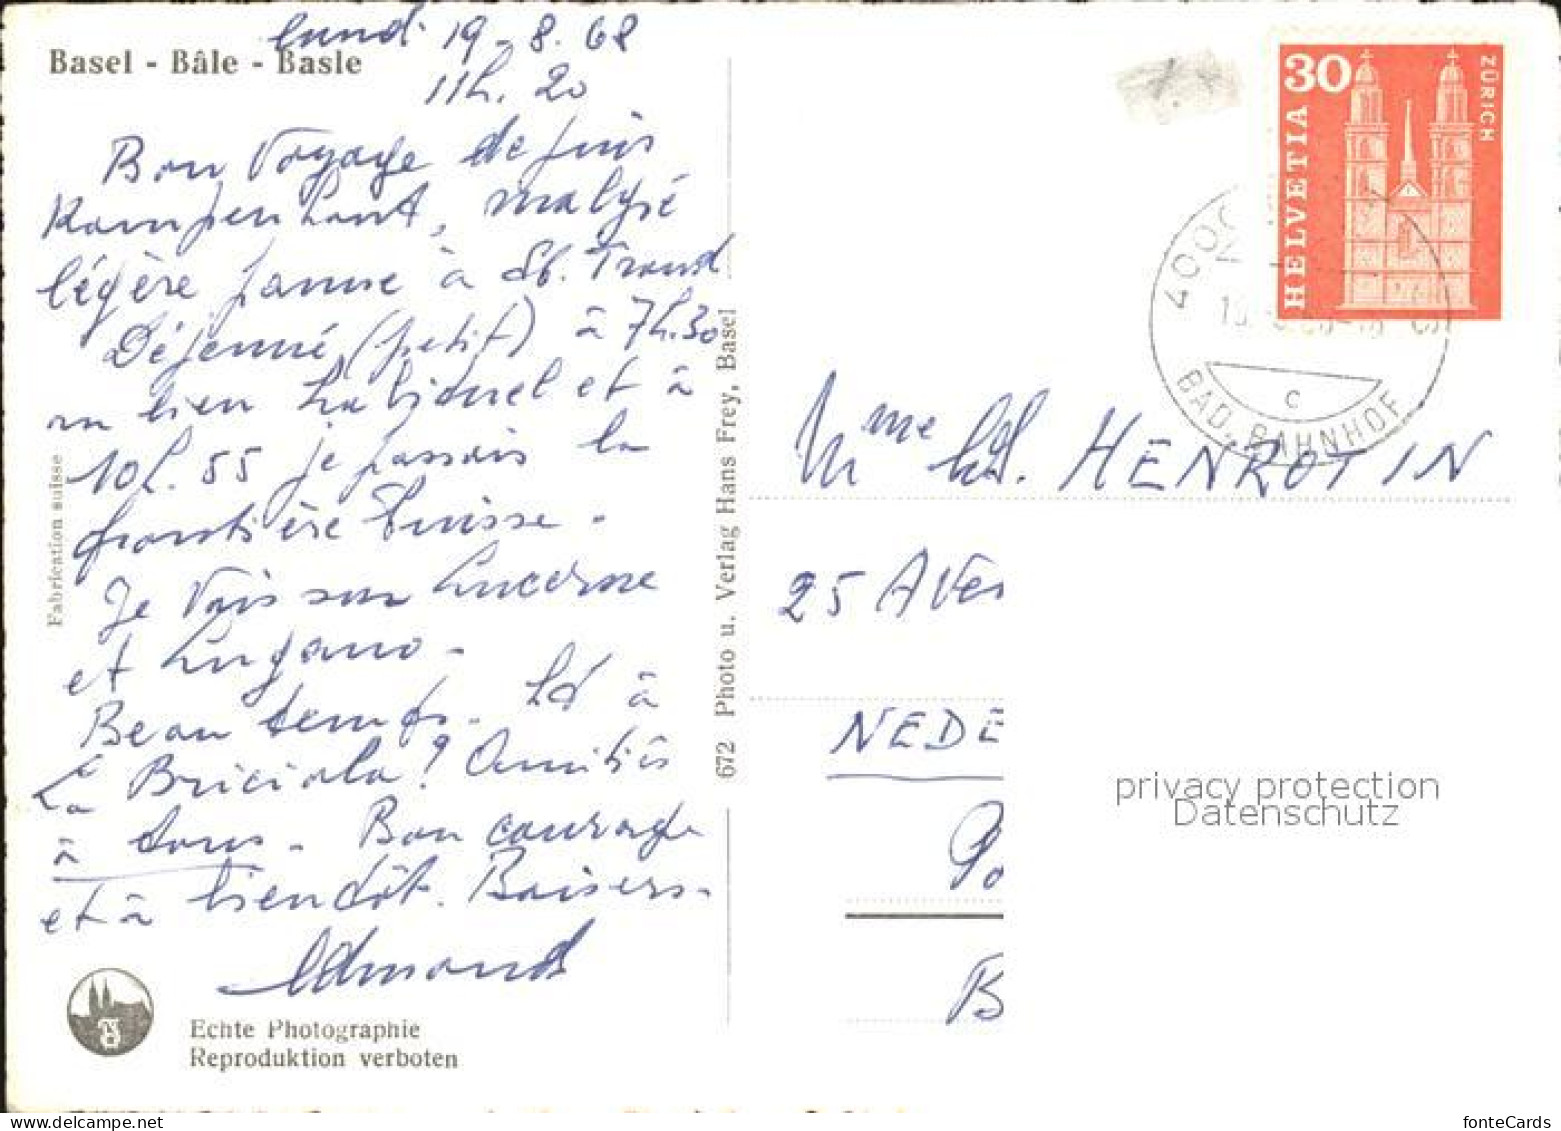 Basel - Bâle - Basle
lundi 19-8.68
11h.20
Bon Voyage depuis
Kampenhout, malgré
légère panne à St. Trond
Déjeuné (petit) à 7h.30
un lien et à
10h.55 je passais la
frontière Suisse.
Je vais sur Lucerne
et Lugano.
Beau temps. Et à
La Briciola? Amitiés
à tous. Bon courage
et à bientôt. Baisers.
Edmond
Fabrication suisse
Echte Photographie
Reproduktion verboten
672 Photo u. Verlag Hans Frey, Basel
30
HELVETIA
ZÜRICH
4000
BAD. BAHNHOF
C
Mme Ed. HENROTIN
25 AVen
NEDE
Po
B
privacy protection
Datenschutz
fonteCards
www.delcampe.net